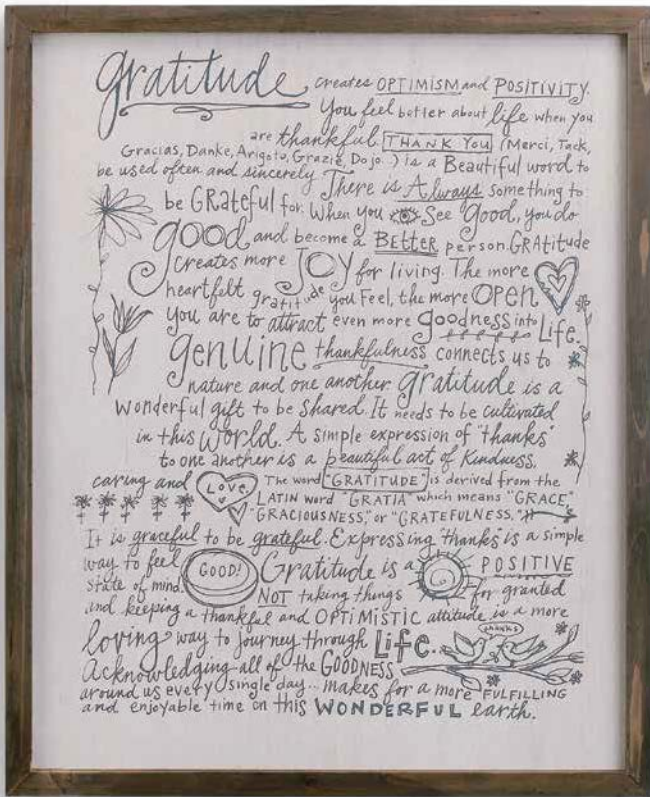 gratitude creates OPTIMISM and POSITIVITY.
You feel better about life when you
are thankful. THANK YOU (Merci, Tack,
Gracias, Danke, Arigoto, Grazie, Dojo..) is a Beautiful word to
be used often and sincerely There is Always something to
be GRAteful for. When you See good, you do
good and become a BETTER person. GRAtitude
creates more JOY for living. The more
heartfelt gratitude you Feel, the more OPEN
you are to attract even more goodness into Life.
genuine thankfulness connects us to
nature and one another. gratitude is a
Wonderful gift to be Shared. It needs to be cultivated
in this World. A simple expression of "thanks"
to one another is a beautiful act of Kindness,
caring and LOVE. The word "GRATITUDE" is derived from the
LATIN word "GRATIA" which means "GRACE",
"GRACIOUSNESS," or "GRATEFULNESS."
It is graceful to be grateful. Expressing "thanks" is a simple
way to feel GOOD! Gratitude is a POSITIVE
state of mind. NOT taking things for granted
and keeping a thankful and OPTIMISTIC attitude is a more
loving way to journey through Life. THANKS
Acknowledging all of the GOODNESS
around us every single day... makes for a more FULFILLING
and enjoyable time on this WONDERFUL earth.